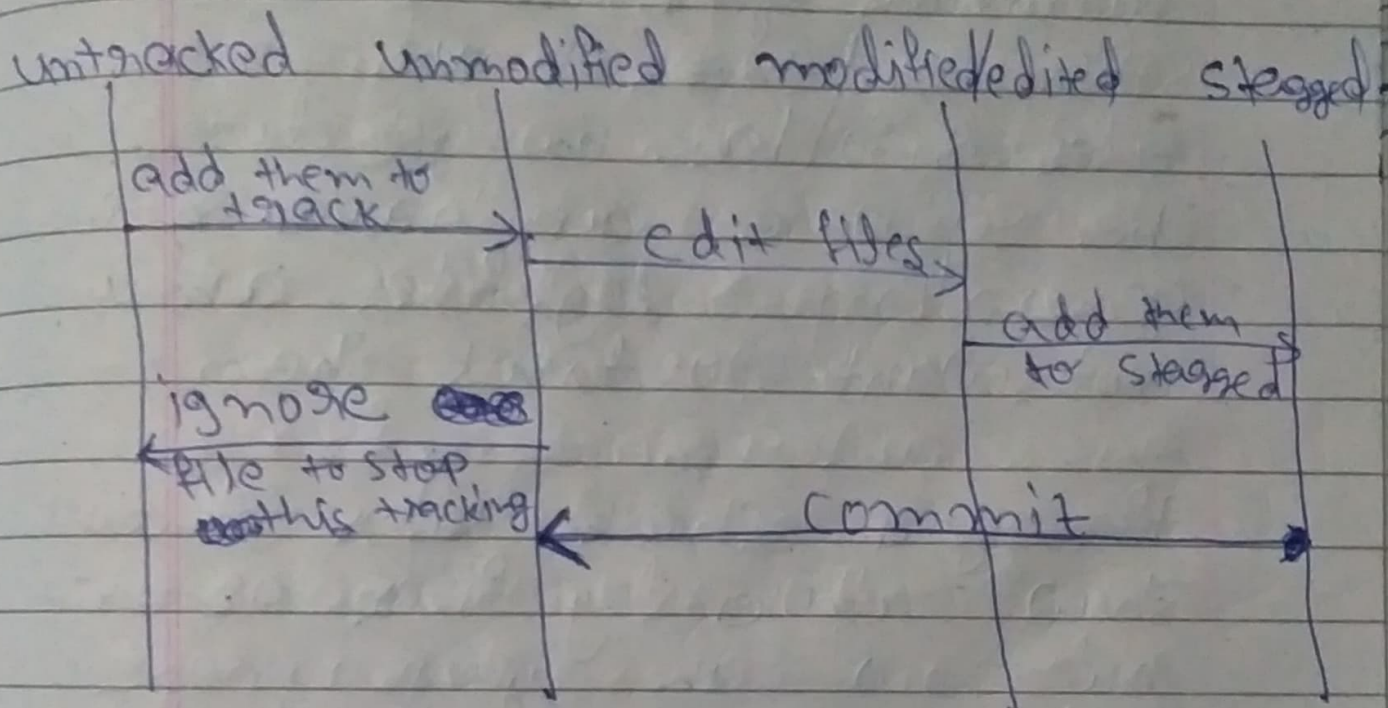 untracked unmodified modified/edited stagged
add them to
track
edit files
add them
to stagged
ignore
file to stop
this tracking
commit